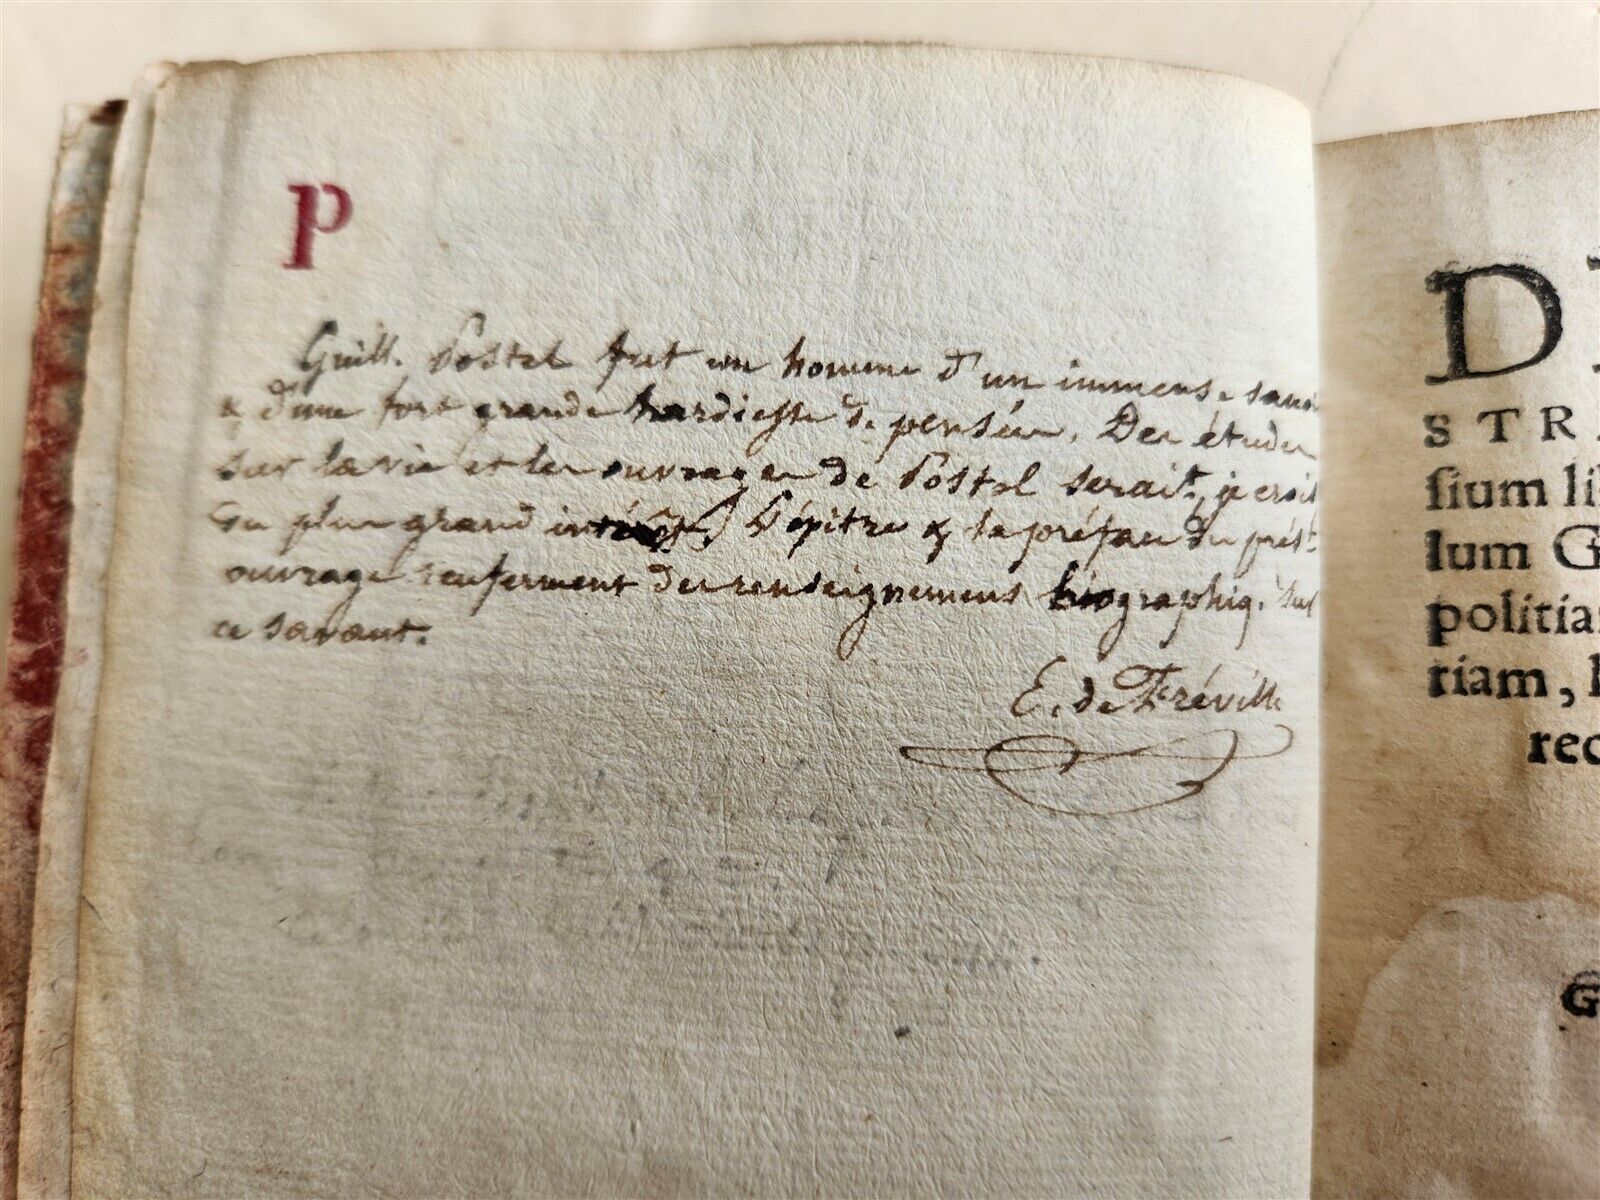 P
Guill. Postel fut un homme d'un immense savoir
& d'une fort grande hardiesse de pensée. Des études
sur la vie et les ouvrages de Postel serait, je crois
du plus grand intérêt. L'épitre & la préface du prést
ouvrage renferment des renseignemens biographiq. sur
ce savant.
E. de Fréville
D
STR
sium li
lum G
politia
riam,
rec
G